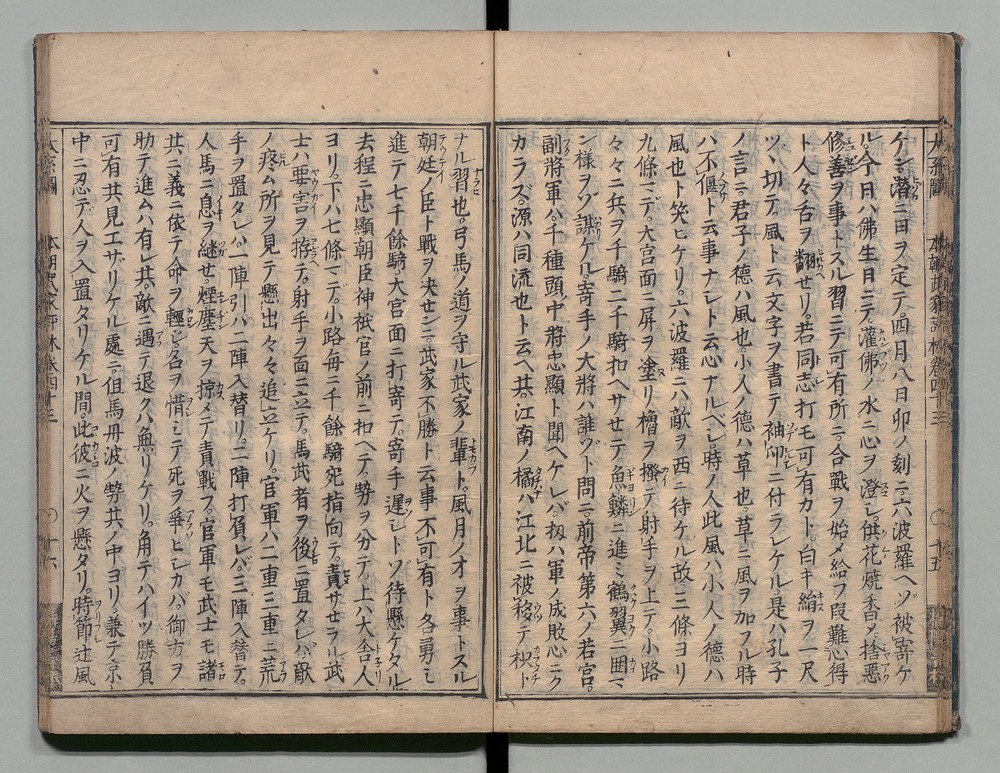 ケシ。潜ニ日ヲ定テ。四月八日卯ノ刻ニ。六波羅ヘゾ被寄ケ
ル。今日ハ佛生日ニテ。灌佛ノ水ニ心ヲ澄シ。供花焼香ノ捨悪
修善ヲ事トスル習ニテ可有所ニ。合戰ヲ始メ給フ叚難心得
ト人々舌ヲ翻セリ。若同志打モ可有カト。白キ絹ヲ一尺
ツヽ切テ。風ト云文字ヲ書テ袖印ニ付ラレケル。是ハ孔子
ノ言ニ。君子ノ德ハ風也。小人ノ德ハ草也。草ニ風ヲ加フル時
ハ不偃ト云事ナシト云心ナルベシ。時ノ人此風ハ小人ノ德ハ
風也ト笑ヒケリ。六波羅ニハ敵ヲ西ニ待ケル故ニ。三條ヨリ
九條ニデ。大宮面ニ屏ヲ塗リ櫓ヲ搔テ射手ヲ上テ。小路
々々ニ兵ヲ千騎二千騎扣ヘサせテ。魚鱗ニ進ミ鶴翼ニ囲ニ
ン様ヲゾ謀ケル。寄手ノ大將ハ誰ゾト問ニ。前帝第六ノ若宮。
副將軍ハ。千種頭中將忠顯ト聞ヘケレバ。扨ハ軍ノ成敗心ニク
カラズ。源ハ同流也ト云ヘ共。江南ノ橘ハ江北ニ被移テ枳ト
ナル習也。弓馬ノ道ヲ守ル武家ノ輩ト。風月ノオヲ事トスル
朝廷ノ臣ト戰ヲ决せンニ。武家不勝ト云事不可有ト。各勇ミ
進テ七千餘騎。大宮面ニ打寄テ。寄手遲シトソ待懸ケタル
去程ニ忠顯朝臣神祇官ノ前ニ扣ヘテ。勢ヲ分テ。上ハ大舎人
ヨリ。下ハ七條ニデ。小路毎ニ千餘騎宛指向テ。責サせラル武
士ハ要害ヲ拵テ。射手ヲ面ニ立テ。馬武者ヲ後ニ置タレバ。敵
ノ疼ム所ヲ見テ。懸出々々追立ケリ。官軍ハ二重三重ニ荒
手ヲ置タレバ。一陣引ハ二陣入替リ。二陣打負レバ。三陣入替テ。
人馬ニ息ヲ継せ。煙塵天ヲ掠メテ責戰フ。官軍モ武士モ諸
共ニ義ニ依テ命ヲ輕シ。名ヲ惜ミテ死ヲ爭ヒシカバ。御方ヲ
助テ進ムハ有レ共。敵ニ遇テ退クハ無リケリ。角テハイツ勝負
可有共見エザリケル處ニ。但馬丹波ノ勢共ノ中ヨリ。兼テ京
中ニ忍テ人ヲ入置タリケル間。此彼ニ火ヲ懸タリ。時節辻風